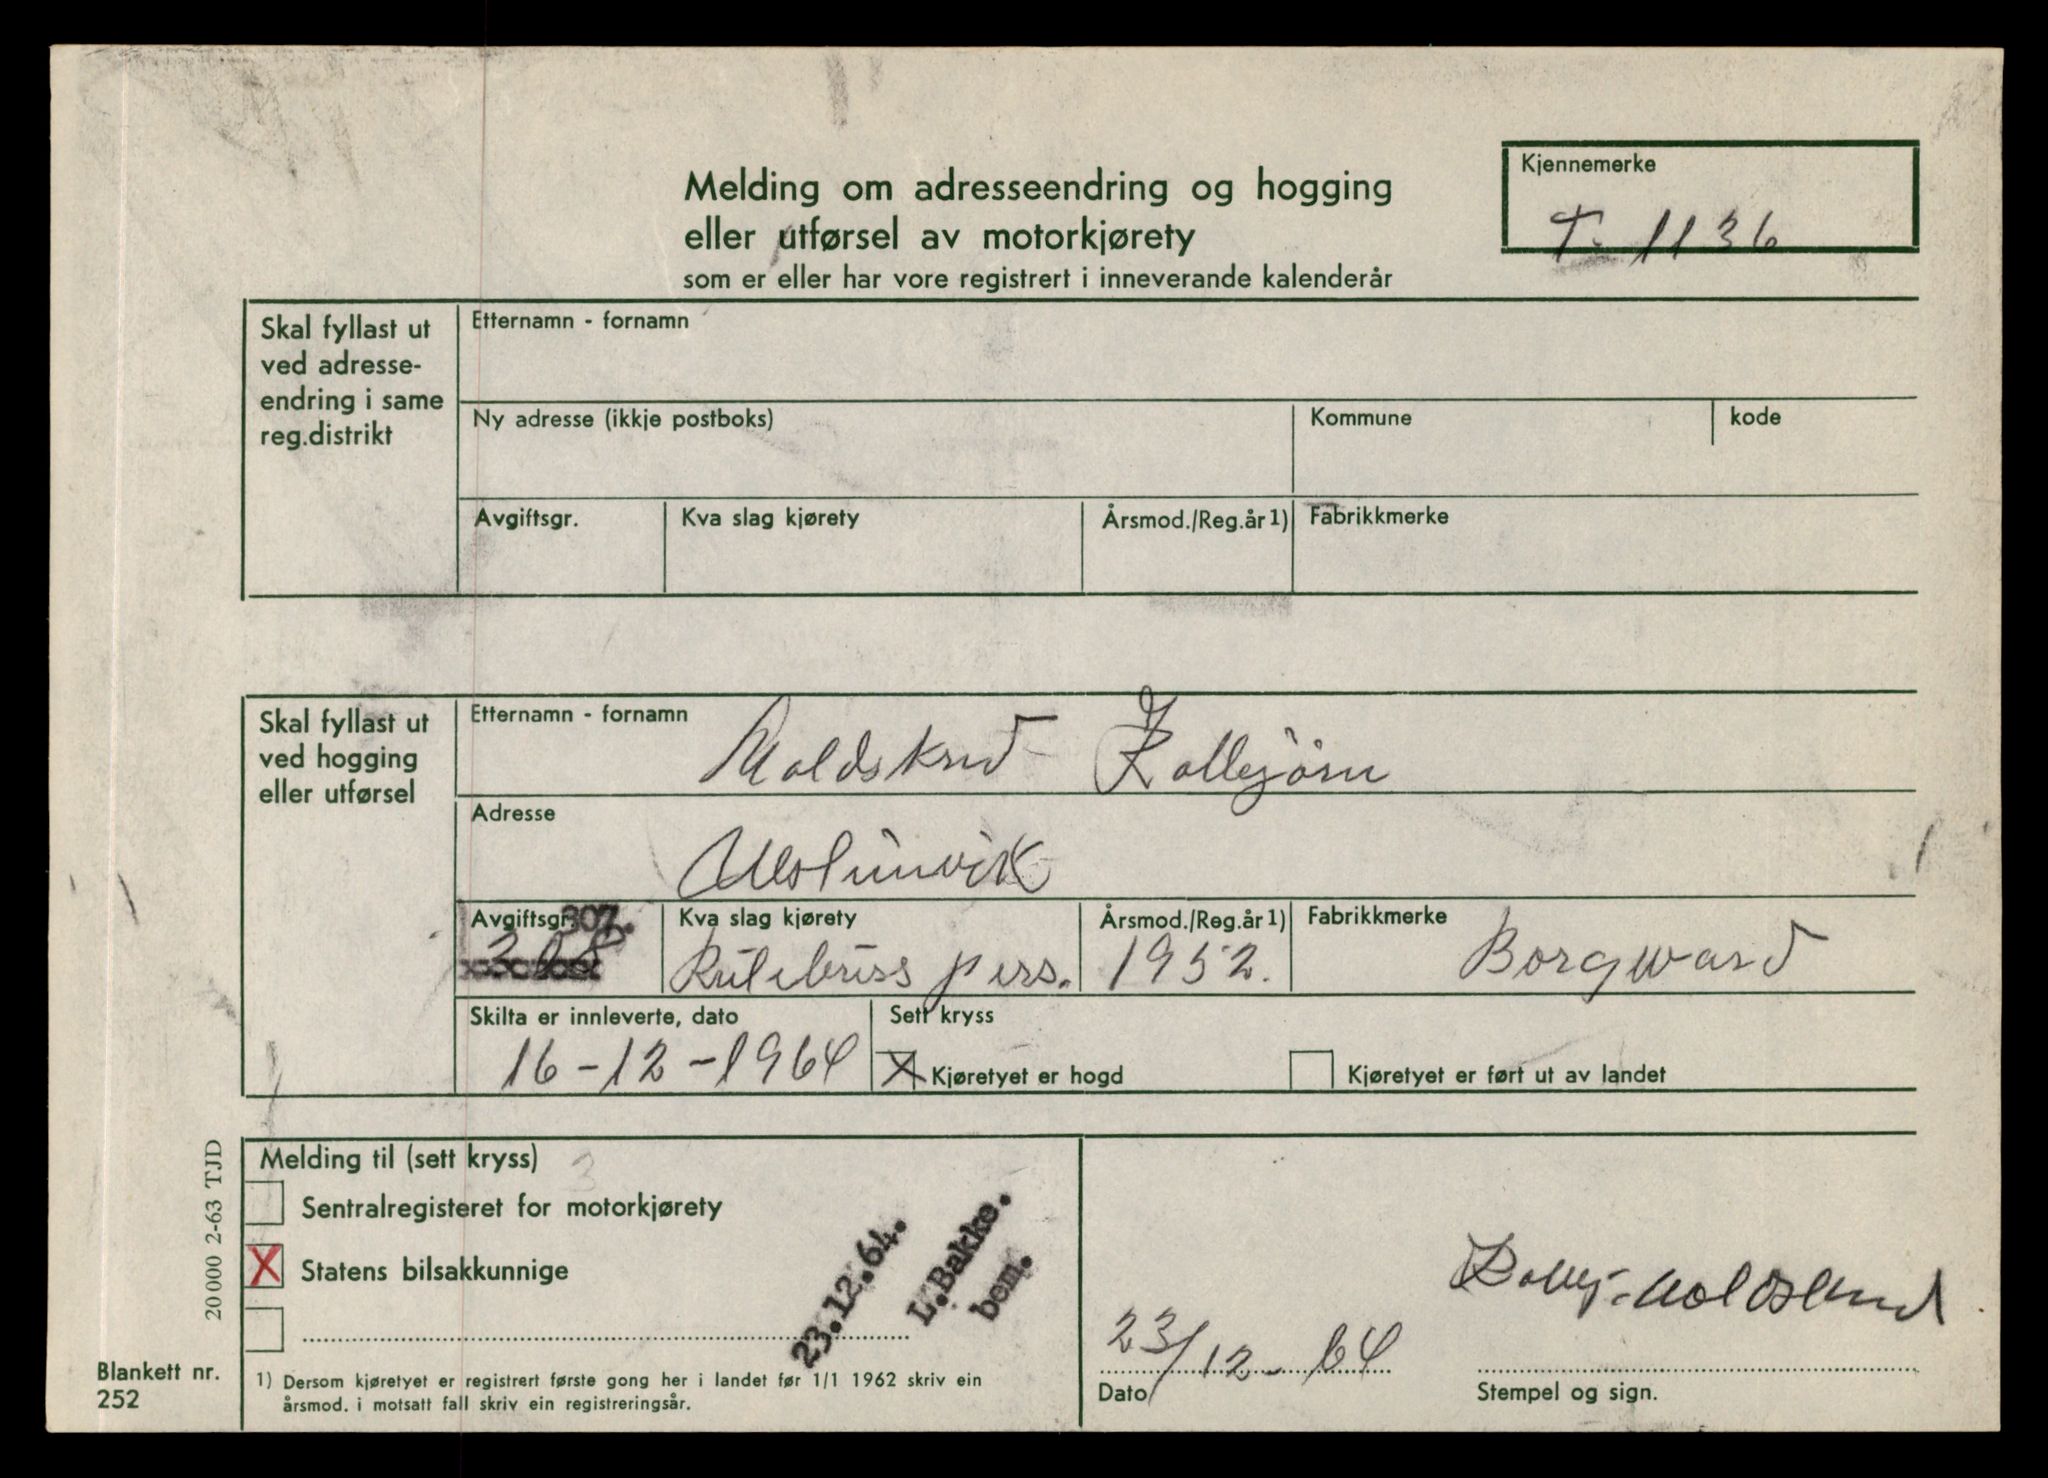 Melding om adresseendring og hogging
eller utførsel av motorkjørety
som er eller har vore registrert i inneverande kalenderår
Kjennemerke
T- 1136
Skal fyllast ut
ved adresse-
endring i same
reg.distrikt
Etternamn - fornamn
Ny adresse (ikkje postboks)
Kommune
kode
Avgiftsgr.
Kva slag kjørety
Årsmod./Reg.år 1)
Fabrikkmerke
Skal fyllast ut
ved hogging
eller utførsel
Etternamn - fornamn
Moldskred
Adresse
Avgiftsgr. 307.
Kva slag kjørety
Rutebuss pers.
Årsmod./Reg.år 1)
1952.
Fabrikkmerke
Borgward
Skilta er innleverte, dato
16-12-1964
Sett kryss
X Kjøretyet er hogd
Kjøretyet er ført ut av landet
Melding til (sett kryss)
3
Sentralregisteret for motorkjørety
X Statens bilsakkunnige
23.12.64.
L.Bakke.
bem.
23/12-64
Dato
Stempel og sign.
1) Dersom kjøretyet er registrert første gong her i landet før 1/1 1962 skriv ein
årsmod. i motsatt fall skriv ein registreringsår.
20000 2-63 TJD
Blankett nr.
252